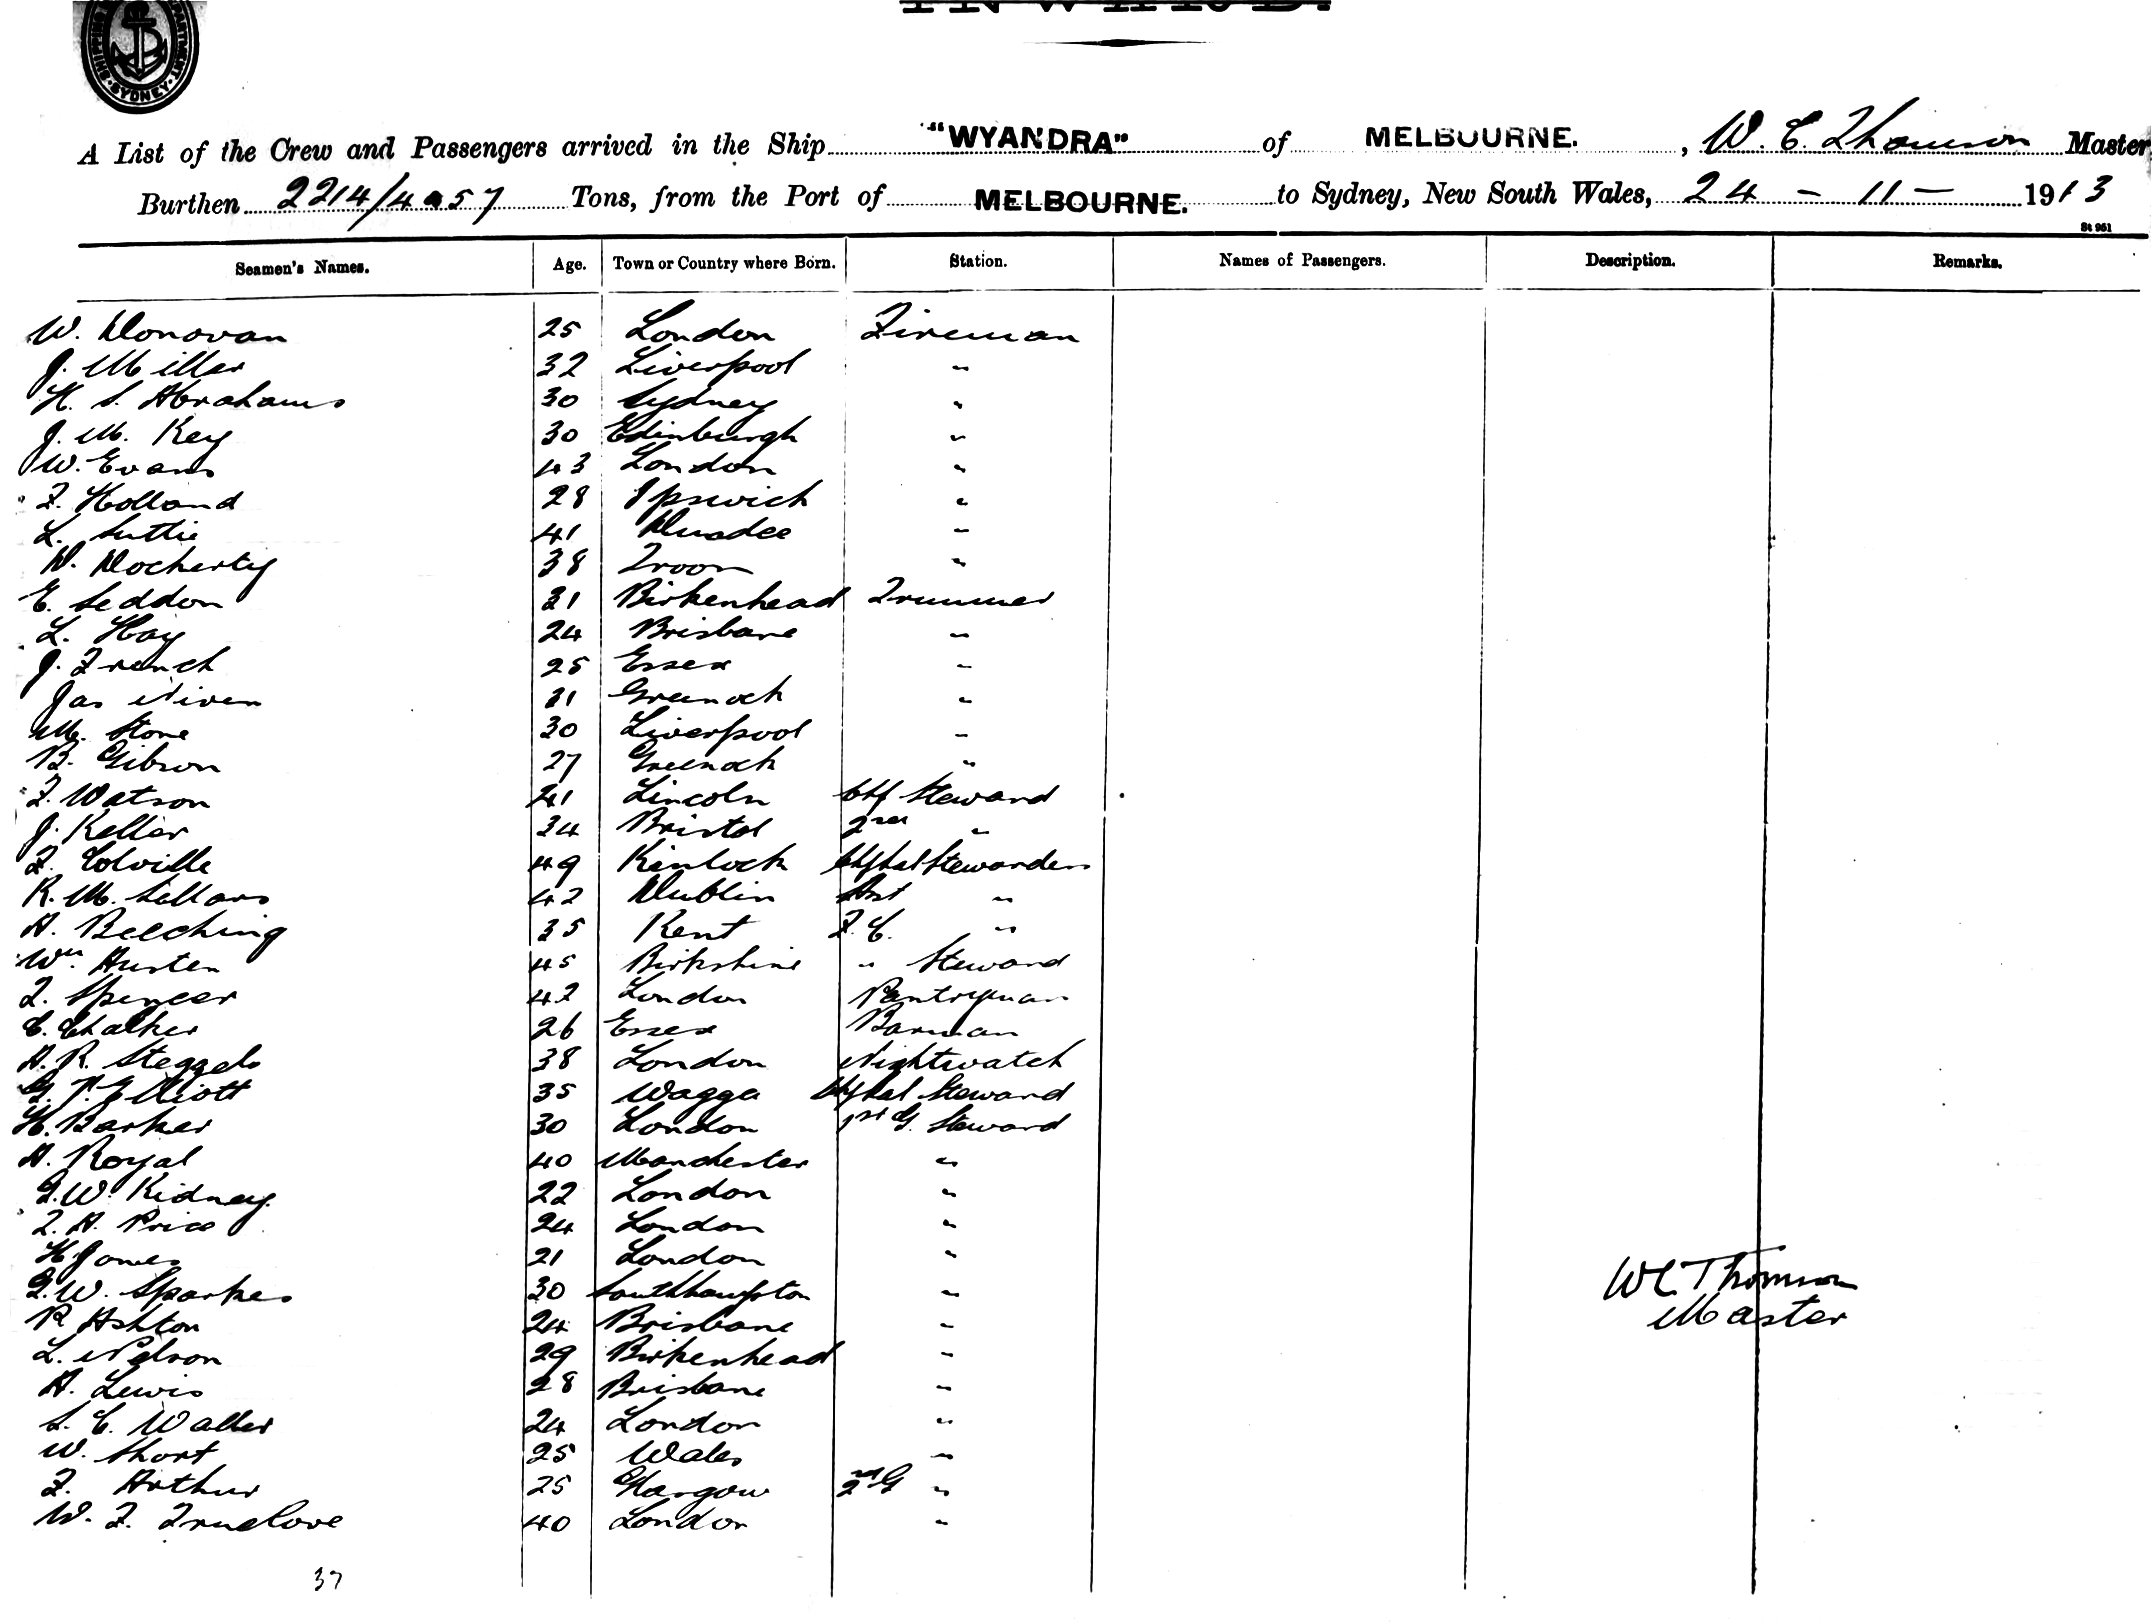 SYDNEY
INWARD.
A List of the Crew and Passengers arrived in the Ship "WYANDRA" of MELBOURNE. , W. C. Thomson Master
Burthen 2214/4057 Tons, from the Port of MELBOURNE. to Sydney, New South Wales, 24 - 11 - 1913
St 951
Seamen's Names. Age. Town or Country where Born. Station. Names of Passengers. Description. Remarks.
W. Donovan 25 London Fireman
J. Miller 32 Liverpool "
H. S. Abrahams 30 Sydney "
J. M. Key 30 Edinburgh "
W. Evans 43 London "
F. Holland 28 Ipswich "
L. Suttie 41 Dundee "
D. Docherty 38 Troon "
E. Seddon 31 Birkenhead Trimmer
L. Hay 24 Brisbane "
J. French 25 Essex "
Jas Niven 31 Greenock "
M. Stone 30 Liverpool "
B. Gibson 27 Greenock "
F. Watson 41 Lincoln Chf Steward
J. Keller 34 Bristol 2nd "
F. Colville 49 Kinlock Chf Sal Stewardess
R. M. Sellars 42 Dublin Asst "
A. Beeching 35 Kent F. C. "
Wm Austen 45 Birkshire " Steward
F. Spencer 42 London Pantryman
C. Chalker 26 Essex Barman
A. R. Steggels 38 London Nightwatch
G. P. Elliott 35 Wagga Chf Sal Steward
H. Barker 30 London 1st G. Steward
A. Royal 40 Manchester "
G. W. Kidney 22 London "
F. A. Price 24 London "
H Jones 21 London "
G. W. Sparkes 30 Southhampton "
R Ashton 24 Brisbane "
L. Nelson 29 Birkenhead "
A. Lewis 28 Brisbane "
S. C. Waller 24 London "
W. Short 25 Wales "
F. Arthur 25 Glasgow 2nd G "
W. F. Truelove 40 London "
WC Thomson
Master
37